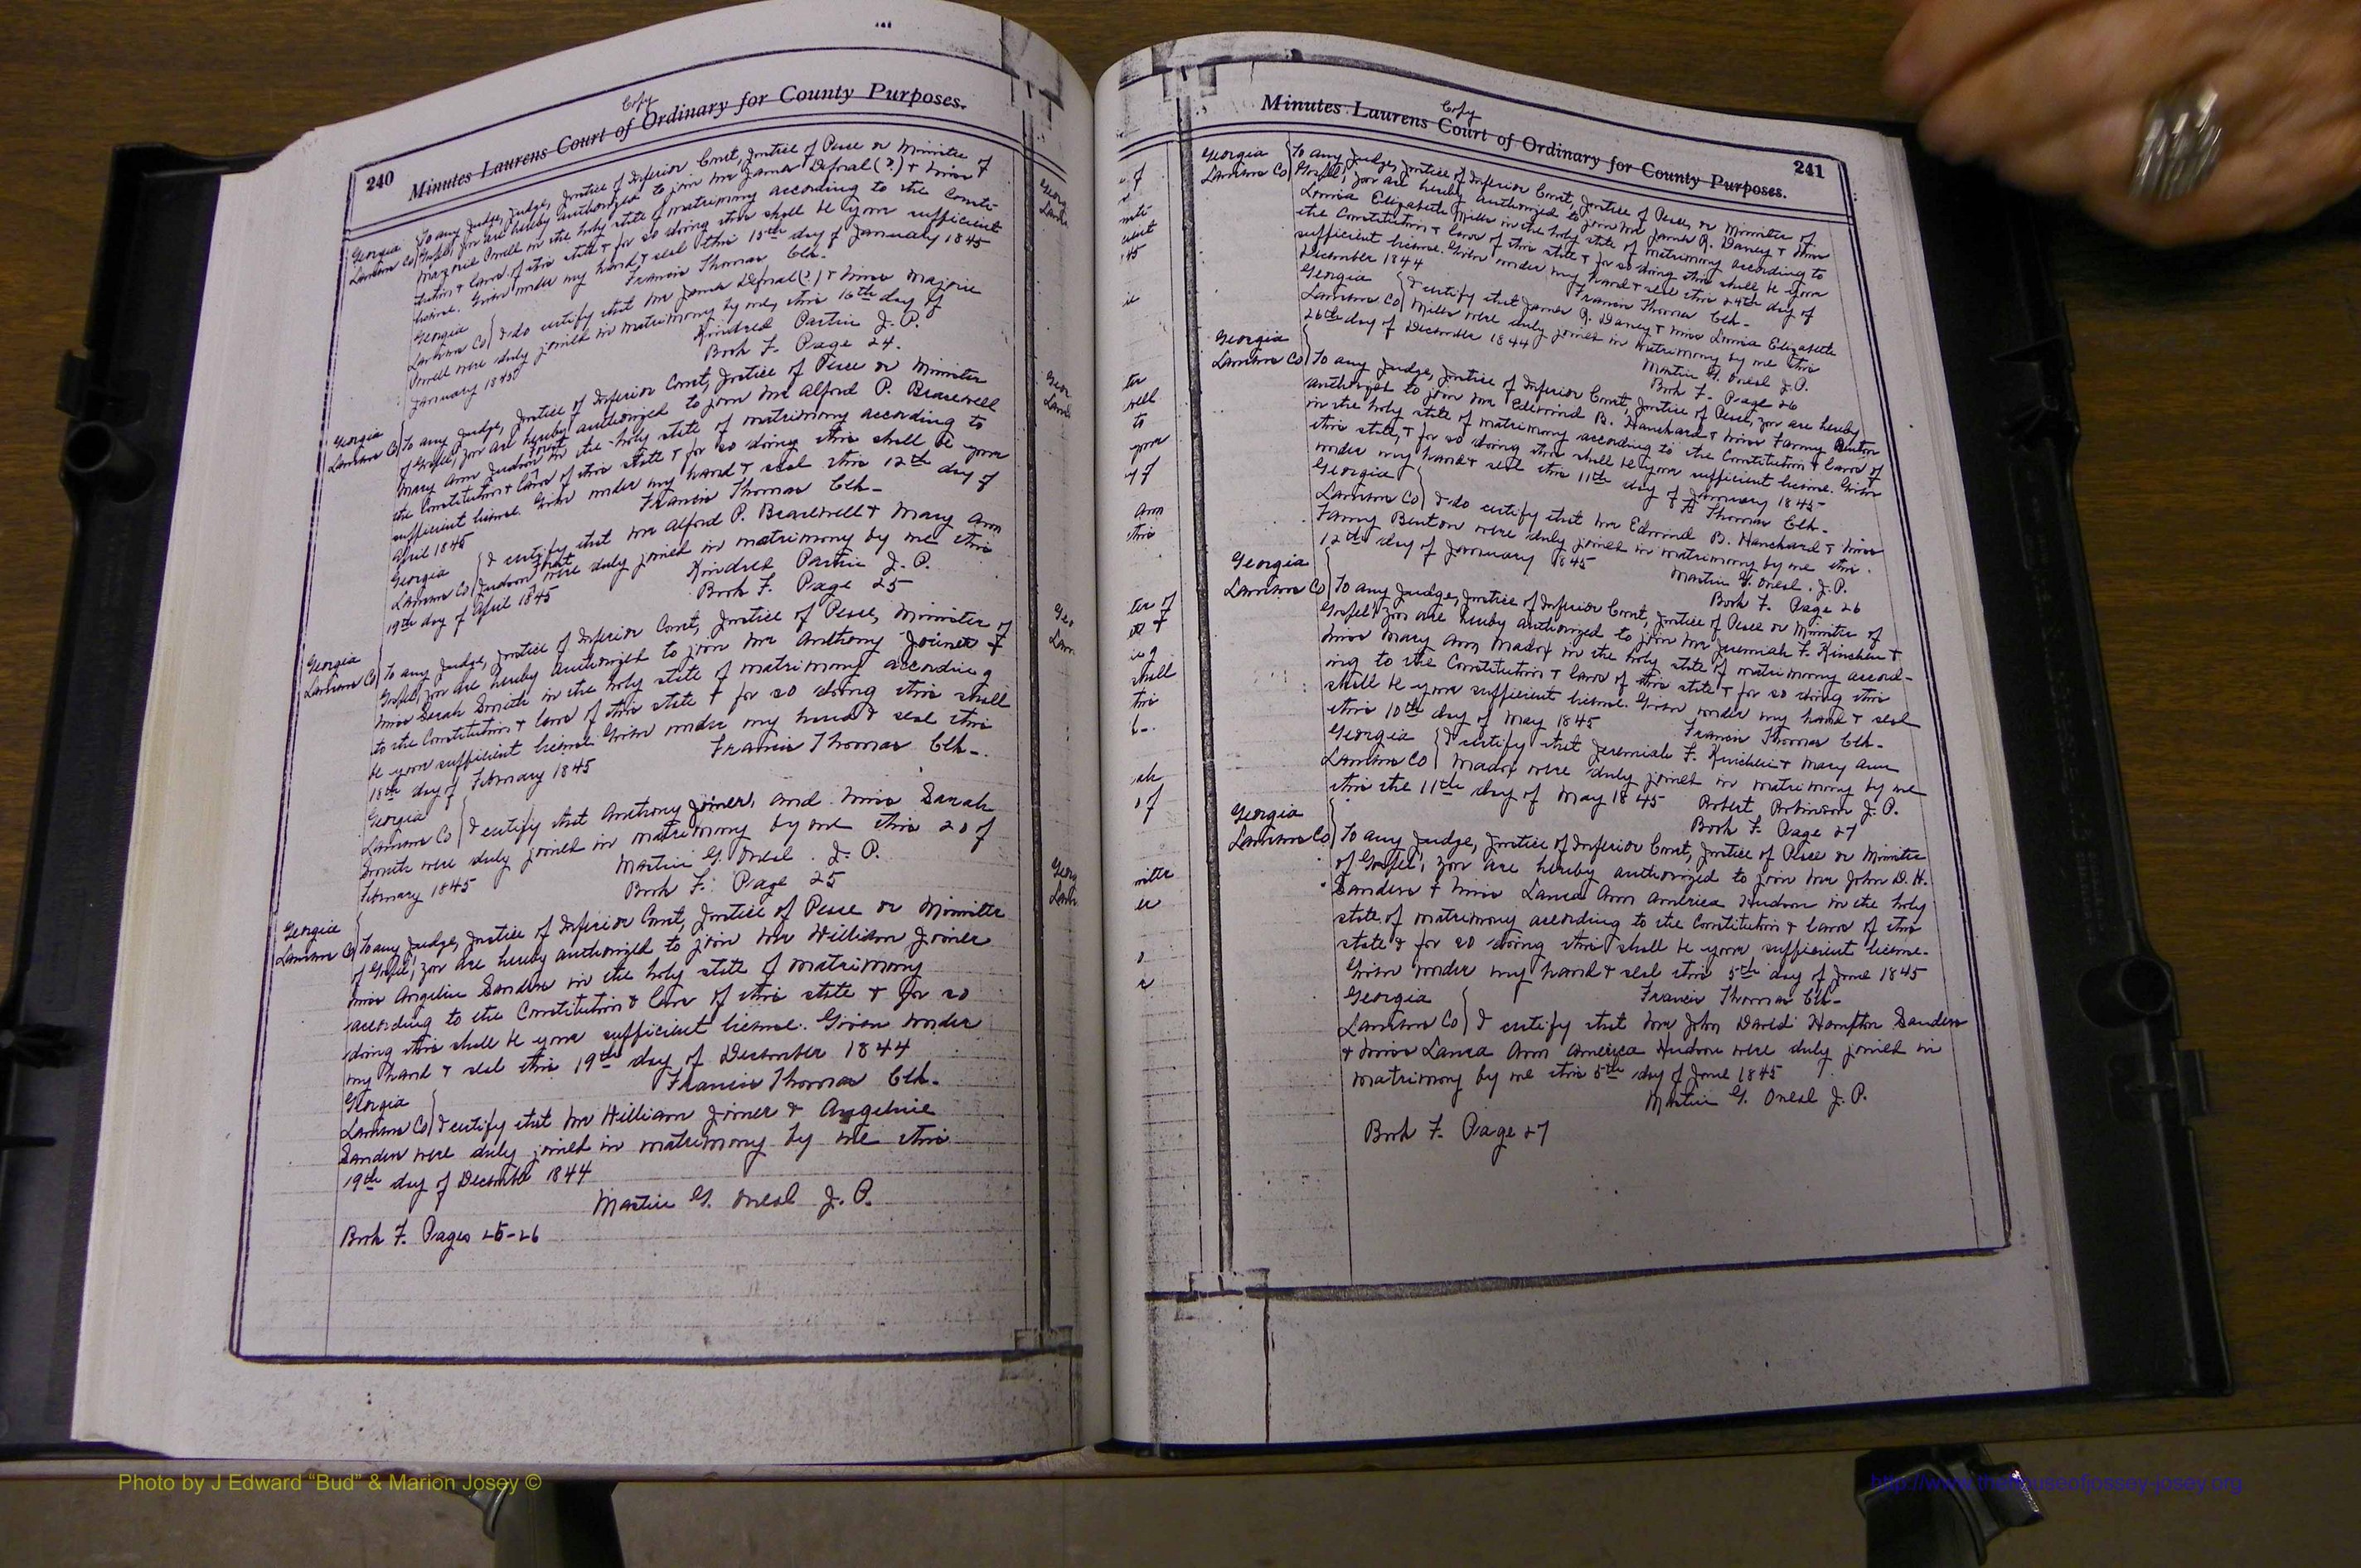 Copy
240 Minutes Laurens Court of Ordinary for County Purposes.
Georgia
Laurens Co
To any Judge, Judge, Justice of Inferior Court, Justice of Peace or Minister of
Gospel, you are hereby authorized to join Mr James Defnal(?) & Miss
Marjorie Powell in the holy state of matrimony according to the Consti-
tution & laws of this state & for so doing this shall be your sufficient
license. Given under my hand & seal this 15th day of January 1845
Francis Thomas Clk.
Georgia
Laurens Co I do certify that Mr James Defnal(?) & Miss Marjorie
Powell were duly joined in matrimony by me, this 16th day of
January 1845
Kindred Partin J. P.
Book F. Page 24.
Georgia
Laurens Co To any Judge, Justice of Inferior Court, Justice of Peace or Minister
of Gospel, you are hereby authorized to join Mr Alford P. Bracewell
Mary Ann Hudson in the holy state of matrimony according to
the Constitution & laws of this state & for so doing this shall be your
sufficient license. Given under my hand & seal this 12th day of
April 1845
Francis Thomas Clk-
Georgia
Laurens Co I certify that Mr Alford P. Bracewell & Mary Ann
Hudson were duly joined in matrimony by me this
19th day of April 1845
Kindred Partin J. P.
Book F. Page 25
Georgia
Laurens Co To any Judge, Justice of Inferior Court, Justice of Peace, Minister of
Gospel, you are hereby authorized to join Mr Anthony Joiner &
Miss Sarah Smith in the holy state of matrimony according
to the Constitution & laws of this state & for so doing this shall
be your sufficient license. Given under my hand & seal this
18th day of February 1845
Francis Thomas Clk-.
Georgia
Laurens Co I certify that Anthony Joiner, and Miss Sarah
Smith were duly joined in matrimony by me this 20 of
February 1845
Martin G. Oneal. J. P.
Book F. Page 25
Georgia
Laurens Co To any Judge, Justice of Inferior Court, Justice of Peace or Minister
of Gospel, you are hereby authorized to join Mr William Joiner
Miss Angeline Sanders in the holy state of matrimony
according to the Constitution & laws of this state & for so
doing this shall be your sufficient license. Given under
my hand & seal this 19th day of December 1844
Francis Thomas Clk.
Georgia
Laurens Co I certify that Mr William Joiner & Angeline
Sanders were duly joined in matrimony by me this
19th day of December 1844
Martin G. Oneal J. P.
Book F. Pages 25-26
Copy
Minutes Laurens Court of Ordinary for County Purposes. 241
Georgia
Laurens Co
To any Judge, Justice of Inferior Court, Justice of Peace, or Minister of
Gospel, you are hereby authorized to join Mr James R. Daney & Miss
Louisa Elizabeth Mills in the holy state of matrimony according to
the Constitution & laws of this state & for so doing this shall be your
sufficient license. Given under my hand & seal this 24th day of
December 1844
Francis Thomas Clk-
Georgia
Laurens Co I certify that James R. Daney & Miss Louisa Elizabeth
Mills were duly joined in matrimony by me this
26th day of December 1844
Martin G. Oneal J. P.
Book F. Page 26
Georgia
Laurens Co To any Judge, Justice of Inferior Court, Justice of Peace, you are hereby
authorized to join Mr Edmond B. Hanchard & Miss Fanny Benton
in the holy state of matrimony according to the Constitution & laws of
this state, & for so doing this shall be your sufficient license. Given
under my hand & seal this 11th day of January 1845
Thomas Clk-
Georgia
Laurens Co I do certify that Mr Edmond B. Hanchard & Miss
Fanny Benton were duly joined in matrimony by me this
12th day of January 1845
Martin G. Oneal. J. P.
Book F. Page 26
Georgia
Laurens Co To any Judge, Justice of Inferior Court, Justice of Peace or Minister of
Gospel, you are hereby authorized to join Mr Jeremiah F. Kinchen &
Miss Mary Ann Maddox in the holy state of matrimony accord-
ing to the Constitution & laws of this state & for so doing this
shall be your sufficient license. Given under my hand & seal
this 10th day of May 1845
Francis Thomas Clk-
Georgia
Laurens Co I certify that Jeremiah F. Kinchen & Mary Ann
Maddox were duly joined in matrimony by me
this the 11th day of May 1845
Robert Robinson J. P.
Book F. Page 27
Georgia
Laurens Co To any Judge, Justice of Inferior Court, Justice of Peace or Minister
of Gospel, you are hereby authorized to join Mr John D. H.
Sanders & Miss Laura Ann America Hudson in the holy
state of matrimony according to the Constitution & laws of this
state & for so doing this shall be your sufficient license.
Given under my hand & seal this 5th day of June 1845
Francis Thomas Clk-
Georgia
Laurens Co I certify that Mr John David Hampton Sanders
& Miss Laura Ann America Hudson were duly joined in
matrimony by me this 5th day of June 1845
Martin G. Oneal J. P.
Book F. Page 27
Photo by J Edward “Bud” & Marion Josey ©
http://www.thehouseofjossey-josey.org